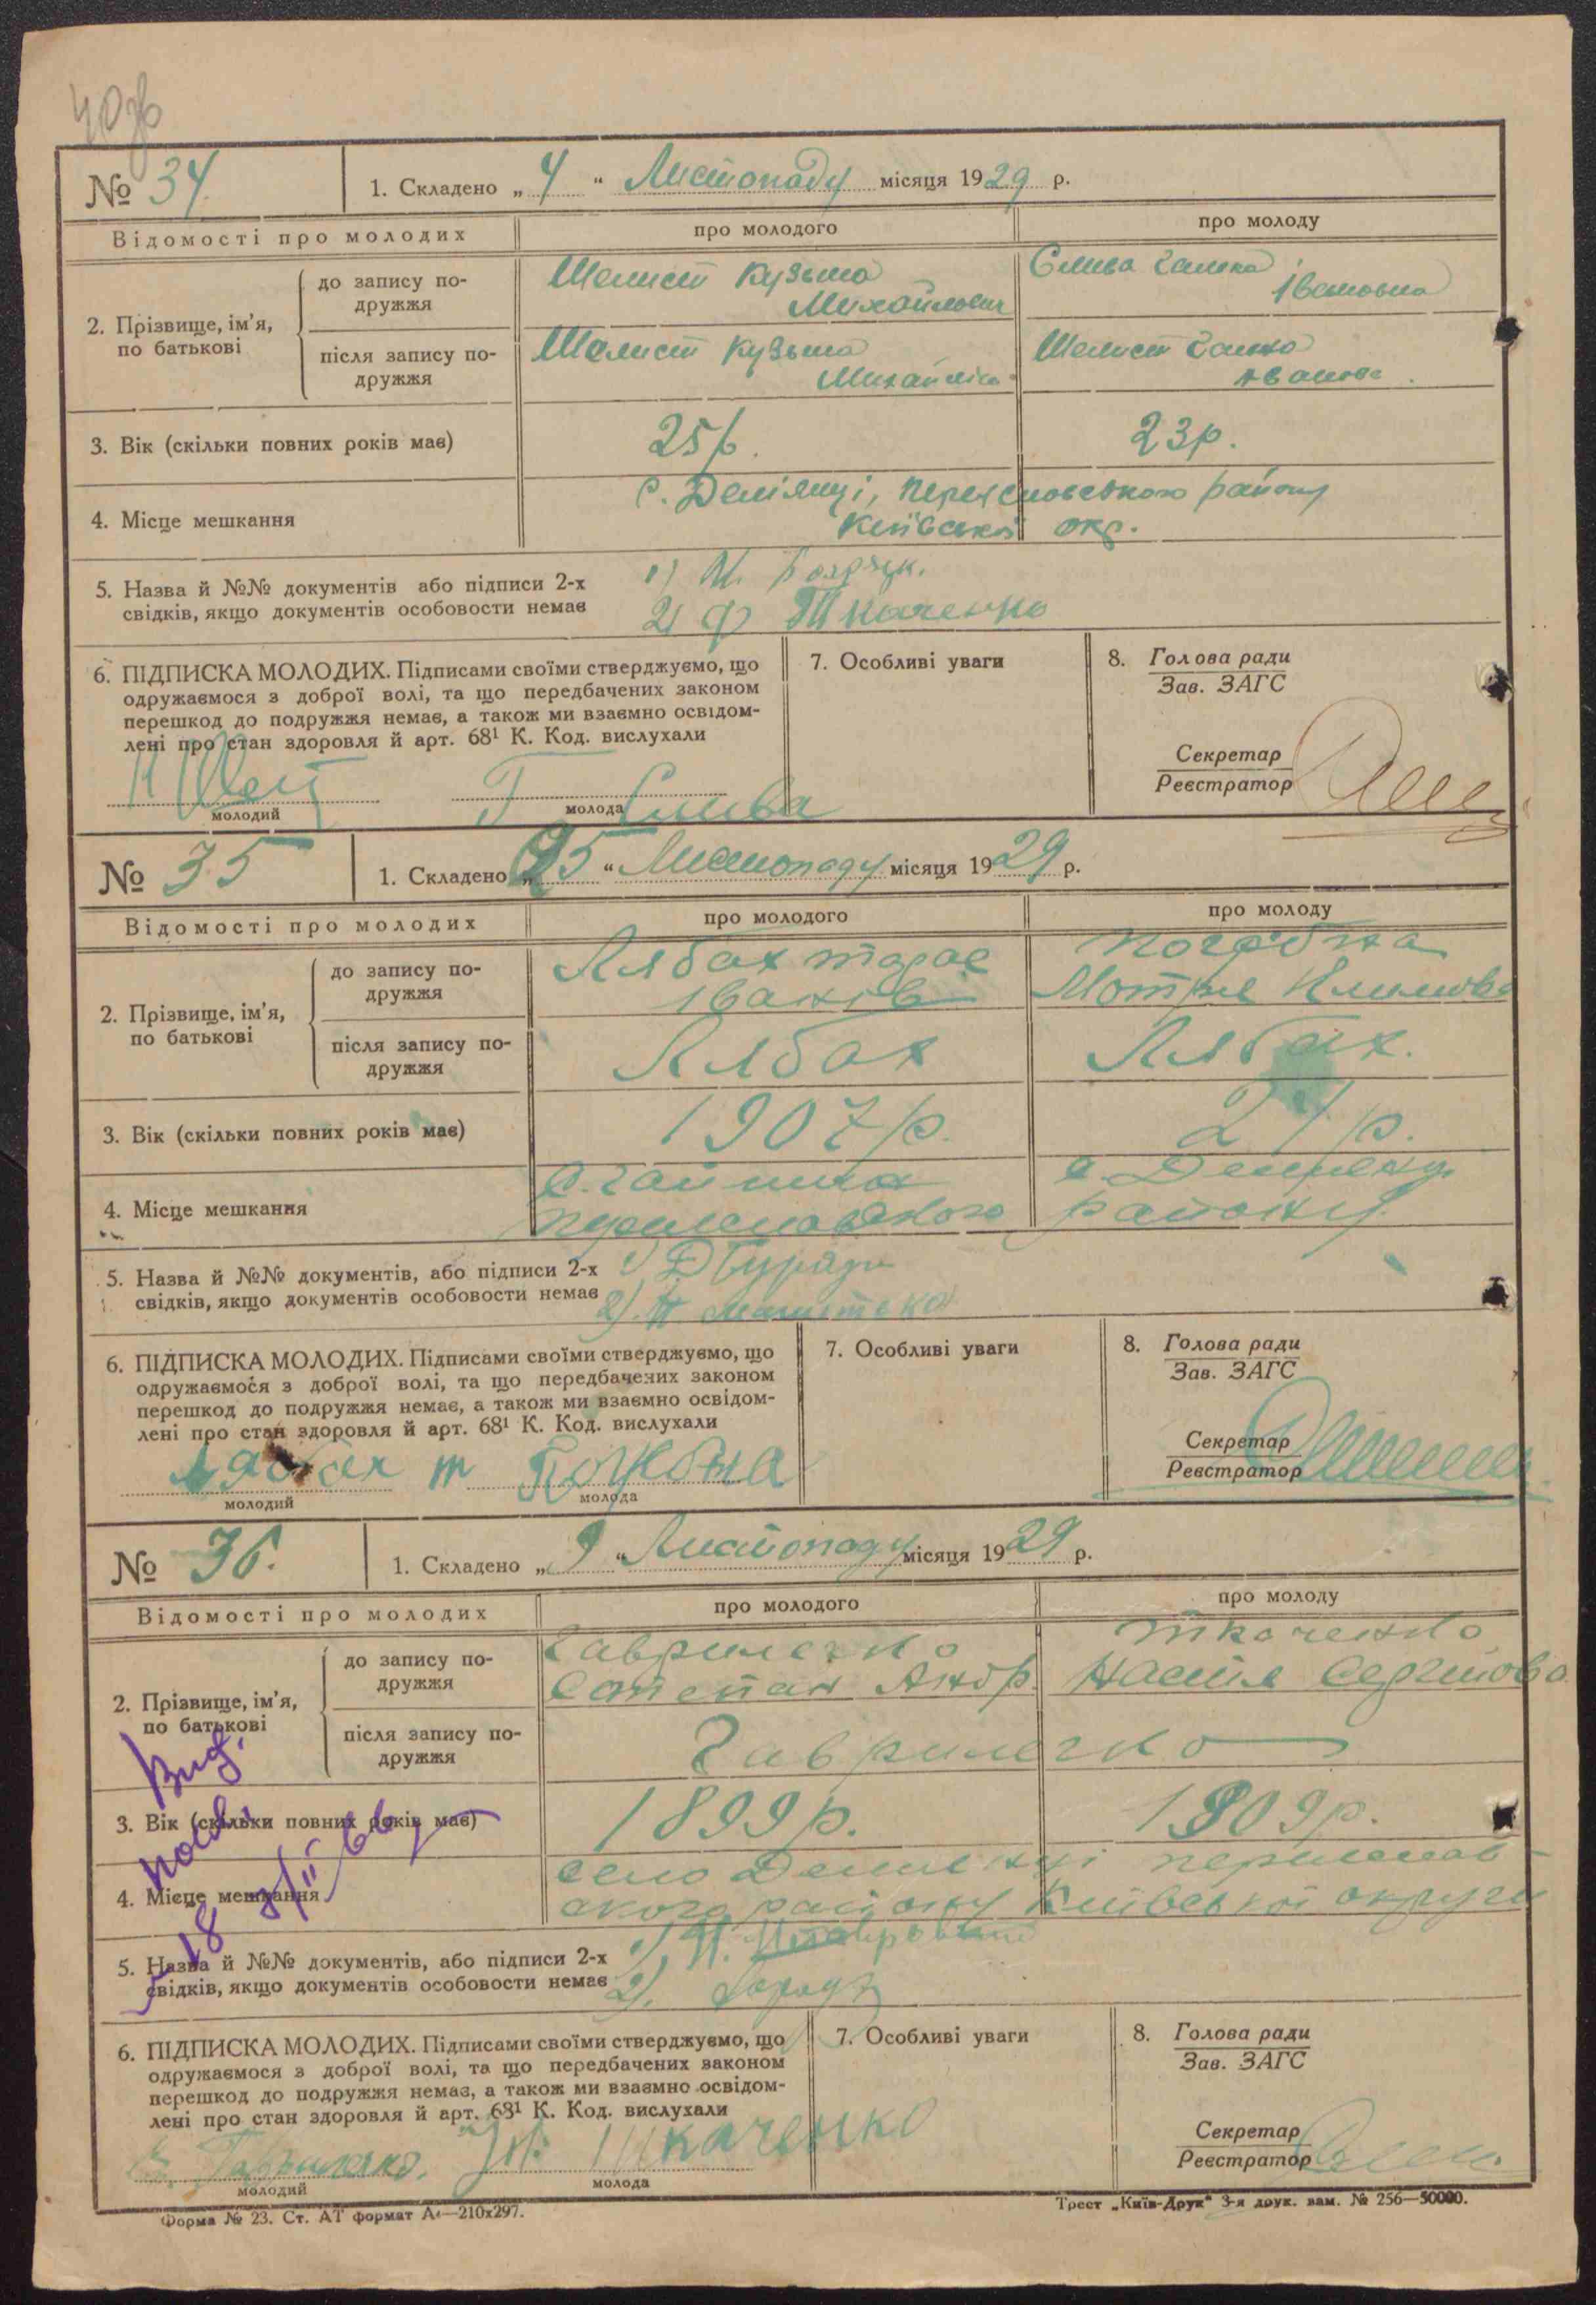 40зв
№ 34.
1. Складено „4“ Листопаду місяця 1929 р.
Відомості про молодих
про молодого
про молоду
2. Прізвище, ім'я, по батькові
до запису подружжя
Шелист Кузьма
Михайлович
Слива Галька
Івановна
після запису подружжя
Шелист Кузьма
Шелист Галько
3. Вік (скільки повних років має)
25р.
23р.
4. Місце мешкання
районy
Київської окр.
5. Назва й №№ документів або підписи 2-х
свідків, якщо документів особовости немає
1) М.
2) Ф Ткаченко
6. ПІДПИСКА МОЛОДИХ. Підписами своїми стверджуємо, що
одружаємося з доброї волі, та що передбачених законом
перешкод до подружжя немає, а також ми взаємно освідом-
лені про стан здоровля й арт. 68¹ К. Код. вислухали
молодий
Г Слива
молода
7. Особливі уваги
8. Голова ради
Зав. ЗАГС
Секретар
Реєстратор
№ 35
1. Складено „25“ Листопаду місяця 1929 р.
Відомості про молодих
про молодого
про молоду
2. Прізвище, ім'я,
по батькові
до запису по-
дружжя
Лябах Тарас
Іванів
Мотря
після запису по-
дружжя
Лябах
Лябах.
3. Вік (скільки повних років має)
1907р.
21р.
4. Місце мешкання
району
5. Назва й №№ документів, або підписи 2-х
свідків, якщо документів особовости немає
1)
2).
6. ПІДПИСКА МОЛОДИХ. Підписами своїми стверджуємо, що
одружаємося з доброї волі, та що передбачених законом
перешкод до подружжя немає, а також ми взаємно освідом-
лені про стан здоровля й арт. 68¹ К. Код. вислухали
Лябах Т
молодий
молода
7. Особливі уваги
8. Голова ради
Зав. ЗАГС
Секретар
Реєстратор
№ 36.
1. Складено „9“ Листопаду місяця 1929 р.
Відомості про молодих
про молодого
про молоду
2. Прізвище, ім'я,
по батькові
до запису по-
дружжя
Гавриленко
Степан Андр.
Ткаченко
Настя Сергиова
після запису по-
дружжя
Гавриленко
3. Вік (скільки повних років має)
1899р.
1909р.
4. Місце мешкання
село Демьянці переяслав-
ского району Київської округи
5. Назва й №№ документів, або підписи 2-х
свідків, якщо документів особовости немає
1).
2).
6. ПІДПИСКА МОЛОДИХ. Підписами своїми стверджуємо, що
одружаємося з доброї волі, та що передбачених законом
перешкод до подружжя немає, а також ми взаємно освідом-
лені про стан здоровля й арт. 68¹ К. Код. вислухали
Гавриленко.
молодий
Ткаченко
молода
7. Особливі уваги
8. Голова ради
Зав. ЗАГС
Секретар
Реєстратор
Форма № 23. Ст. АТ формат А4—210х297.
Трест „Київ-Друк“ 3-я друк. зам. № 256—50000.